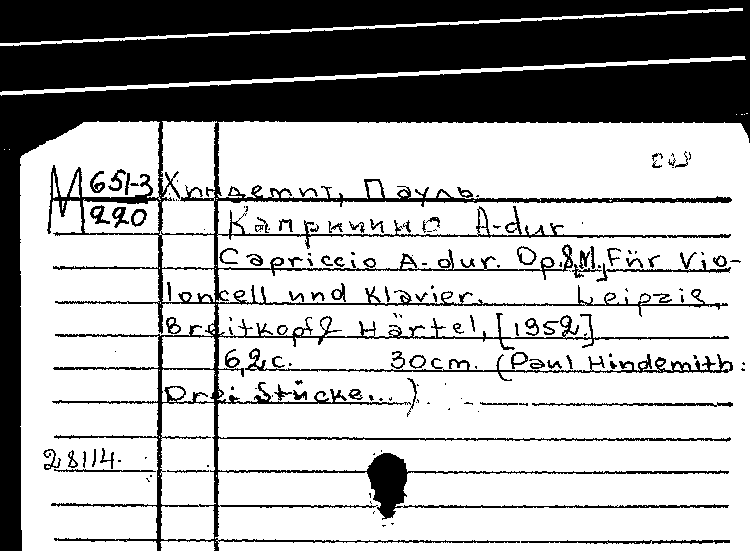 М 651-3 Хиндемит, Пауль.
220 Каприччио A-dur
Capriccio A-dur. Op.8,N1, Für Vio-
loncell und Klavier. Leipzig,
Breitkopf & Härtel, [1952]
6,2 с. 30cm. (Paul Hindemith:
Drei Stücke...)
28114.